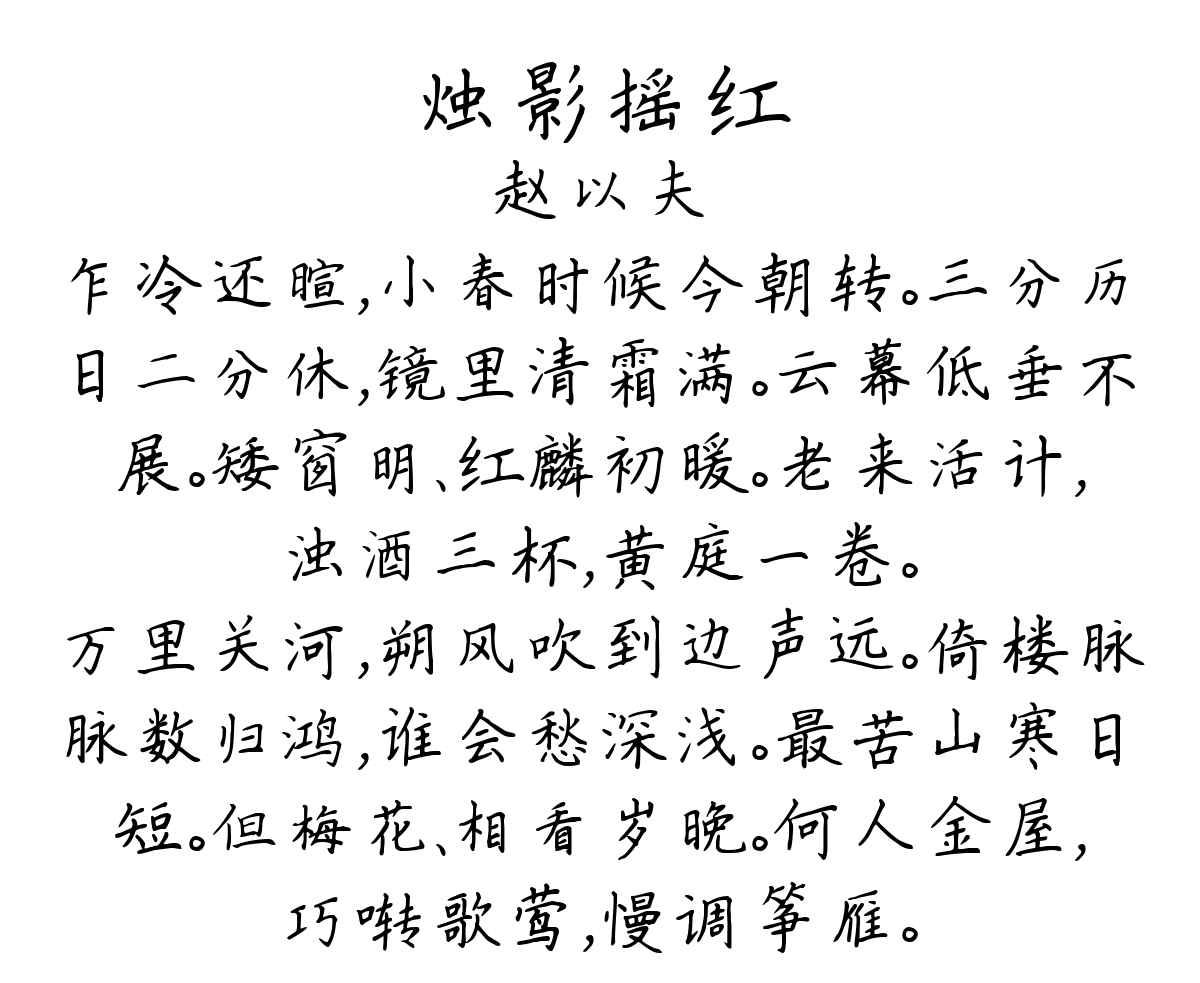 烛影摇红
赵以夫
乍冷还暄,小春时候今朝转。三分历
日二分休,镜里清霜满。云幕低垂不
展。矮窗明、红麟初暖。老来活计,
浊酒三杯,黄庭一卷。
万里关河,朔风吹到边声远。倚楼脉
脉数归鸿,谁会愁深浅。最苦山寒日
短。但梅花、相看岁晚。何人金屋,
巧啭歌莺,慢调筝雁。